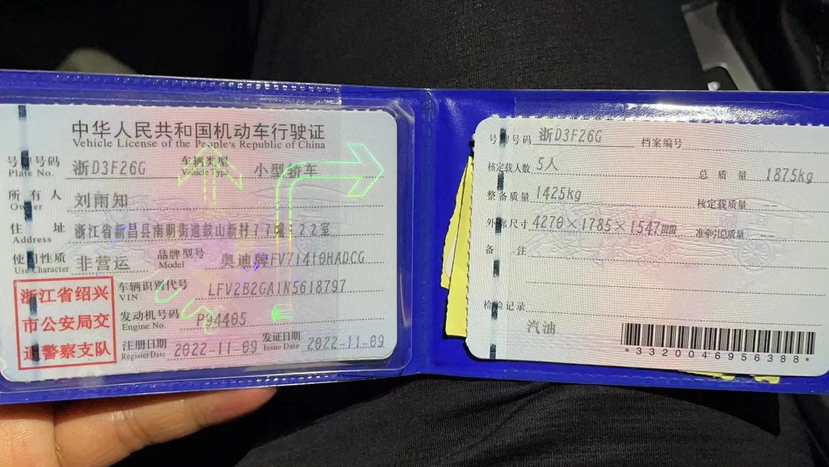 中华人民共和国机动车行驶证
Vehicle License of the People's Republic of China
号牌号码 浙D3F26G 车辆类型 小型轿车
Plate No. Vehicle Type
所有人 刘雨知
Owner
住址 浙江省新昌县南明街道鼓山新村77幢322室
Address
使用性质 非营运 品牌型号 奥迪牌FV71410HADCG
Use Character Model
浙江省绍兴
市公安局交
通警察支队
车辆识别代号 LFV2B2GA1K5618797
VIN
发动机号码 P94485
Engine No.
注册日期 2022-11-09 发证日期 2022-11-09
Register Date Issue Date
号牌号码 浙D3F26G 档案编号
核定载人数 5人 总质量 1875kg
整备质量 1425kg 核定载质量
外廓尺寸 4270×1785×1547mm 准牵引总质量
备注
检验记录
汽油
*3320046956388*